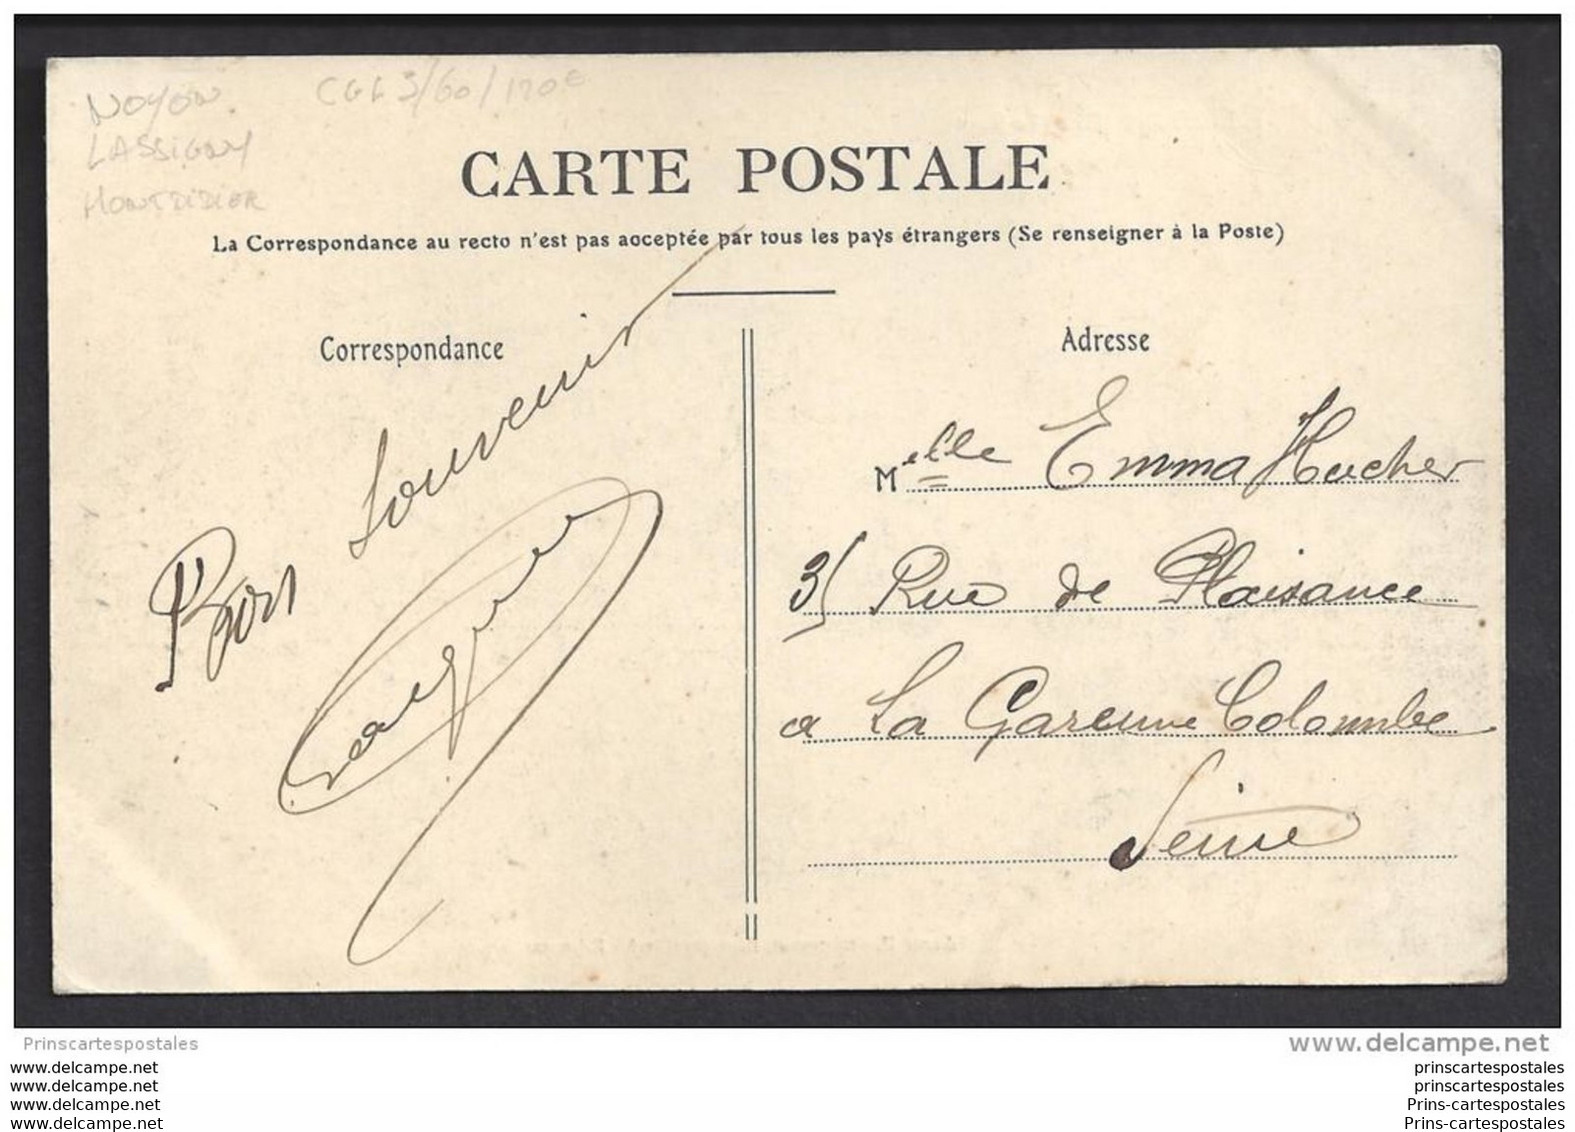 NOYON
LASSIGNY
MONTDIDIER
CARTE POSTALE
La Correspondance au recto n'est pas acceptée par tous les pays étrangers (Se renseigner à la Poste)
Correspondance
Bon Souvenir
Adresse
Melle Emma Hucher
3 Rue de Plaisance
a La Garenne Colombe
Seine
Prinscartespostales
www.delcampe.net
www.delcampe.net
www.delcampe.net
www.delcampe.net
www.delcampe.net
prinscartespostales
prinscartespostales
Prins-cartespostales
Prins-cartespostales